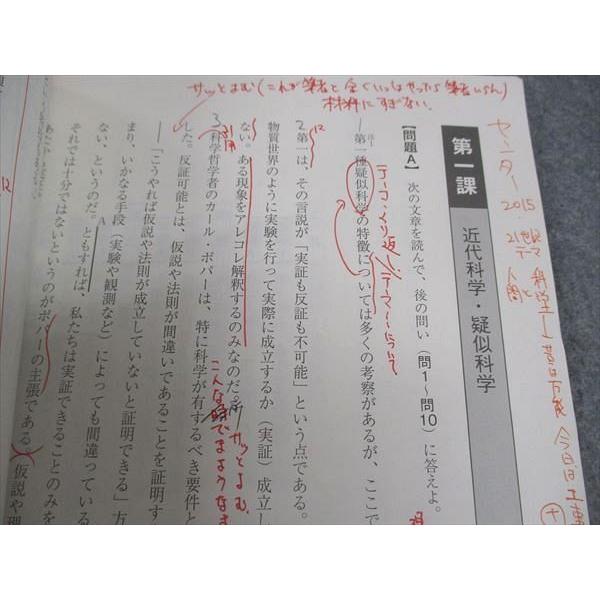 サッとよむ(これが筆者と全くいっしょやったら筆者いらん)
材料にすぎない。
センター2015
21世紀
テーマ
人間と
科学
昔は万能
今日は工事
第一課
近代科学・疑似科学
【問題A】 次の文章を読んで、後の問い(問1〜問10)に答えよ。
テーマ・くり返し
テーマについて
1
第一種疑似科学の特徴については多くの考察があるが、ここで
2
第一は、その言説が「実証も反証も不可能」という点である。
物質世界のように実験を行って実際に成立するか(実証)成立し
ない。ある現象をアレコレ解釈するのみなのだ。
サッとよむ
3
科学哲学者のカール・ポパーは、特に科学が有するべき要件と
引用
した。反証可能とは、仮説や法則が間違いであることを証明す
「こうやれば仮説や法則が成立していないと証明できる」方
まり、いかなる手段(実験や観測など)によっても間違っている
ない、というのだ。ともすれば、私たちは実証できることのみを
A
それでは十分ではないというのがポパーの主張である。仮説や理